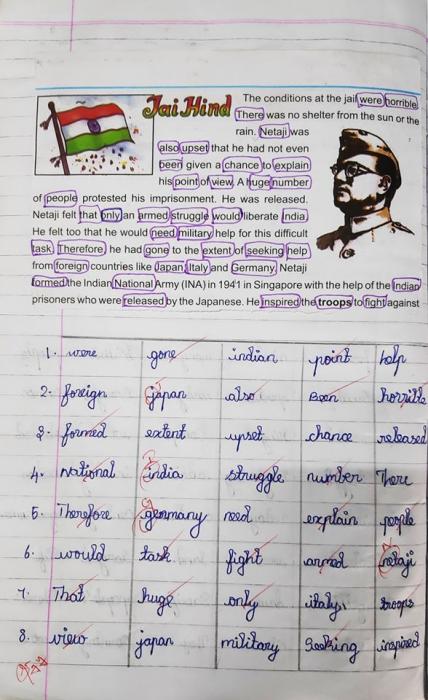 Jai Hind
The conditions at the jail were horrible
There was no shelter from the sun or the
rain. Netaji was
also upset that he had not even
been given a chance to explain
his point of view. A huge number
of people protested his imprisonment. He was released.
Netaji felt that only an armed struggle would liberate India
He felt too that he would need military help for this difficult
task. Therefore he had gone to the extent of seeking help
from foreign countries like Japan, Italy and Germany. Netaji
formed the Indian National Army (INA) in 1941 in Singapore with the help of the Indian
prisoners who were released by the Japanese. He inspired the troops to fight against
1. were gone indian point help
2. foreign japan also Been horrible
3. formed extent upset chance released
4. National india struggle number There
5. Therefore germany need explain people
6. would task fight armed netaji
7. That huge only italy, troops
8. view japan military Seeking inspired